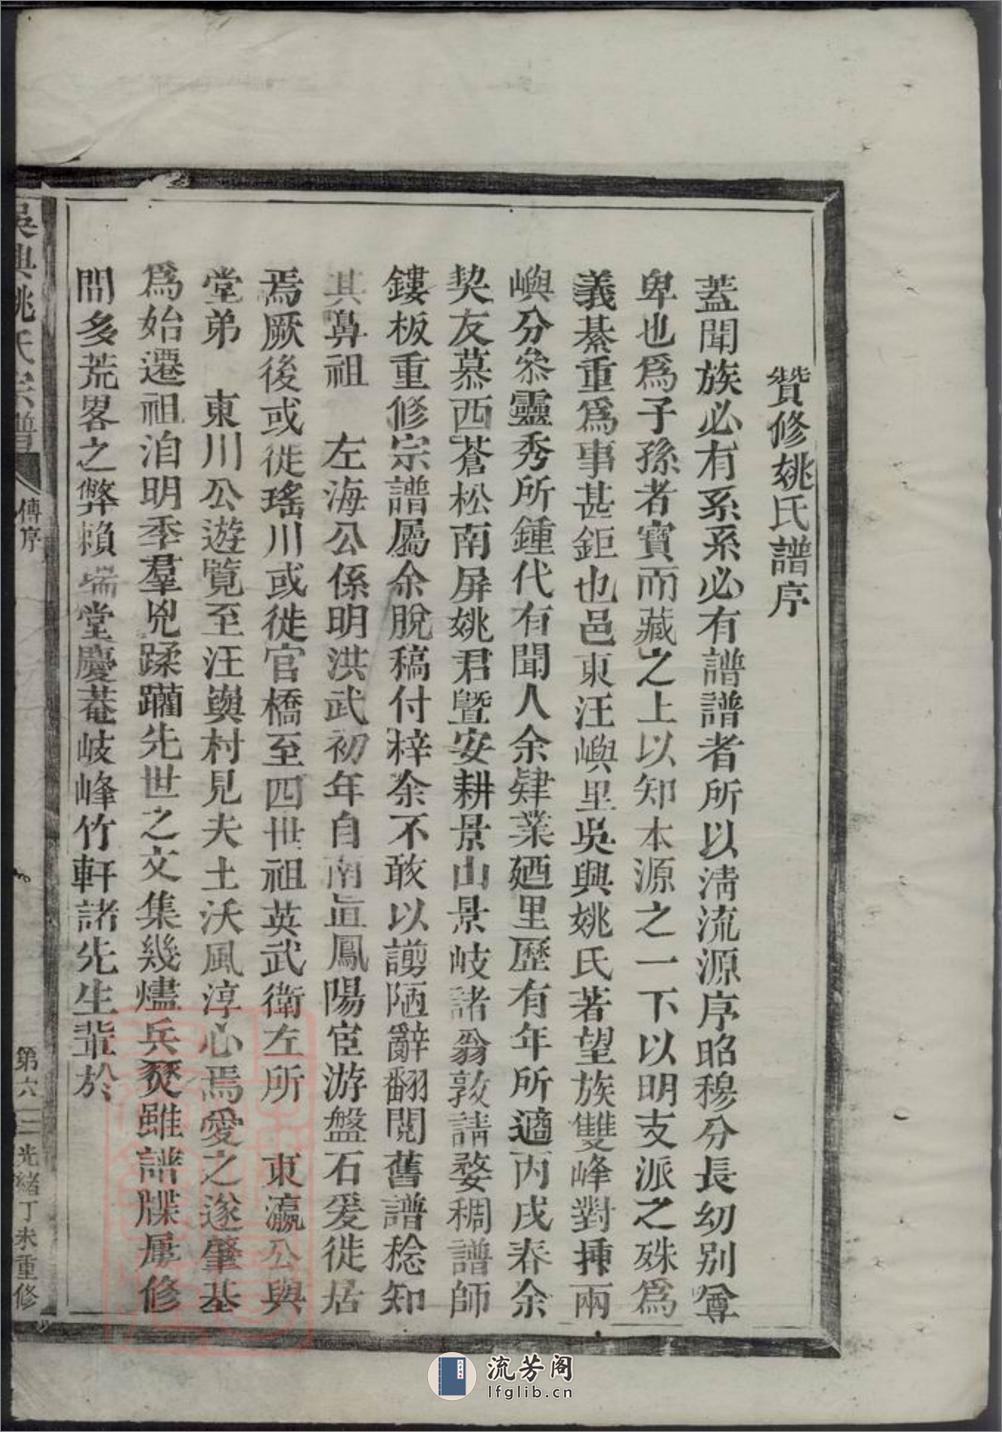 贊修姚氏譜序
蓋聞族必有系系必有譜譜者所以淸流源序昭穆分長幼别尊
卑也爲子孫者寶而藏之上以知本源之一下以明支派之殊爲
義綦重爲事甚鉅也邑東汪嶼里吳興姚氏著望族雙峰對挿兩
嶼分叅靈秀所鍾代有聞人余肄業廼里歷有年所適丙戌春余
契友慕西蒼松南屏姚君暨安耕景山景岐諸翁敦請婺稠譜師
鏤板重修宗譜屬余脫稿付梓余不敢以謭陋辭翻閱舊譜稔知
其鼻祖　左海公係明洪武初年自南直鳳陽宦游盤石爰徙居
焉厥後或徙瑤川或徙官橋至四世祖英武衛左所　東瀛公與
堂弟　東川公遊覽至汪與村見夫土沃風淳心焉愛之遂肇基
爲始遷祖洎明季羣兇蹂躪先世之文集幾燼兵燹雖譜牒屢修
間多荒畧之弊賴瑞堂慶菴岐峰竹軒諸先生輩於
吳興姚氏宗譜
傳序
第六
光緒丁未重修
流芳阁
lfglib.cn